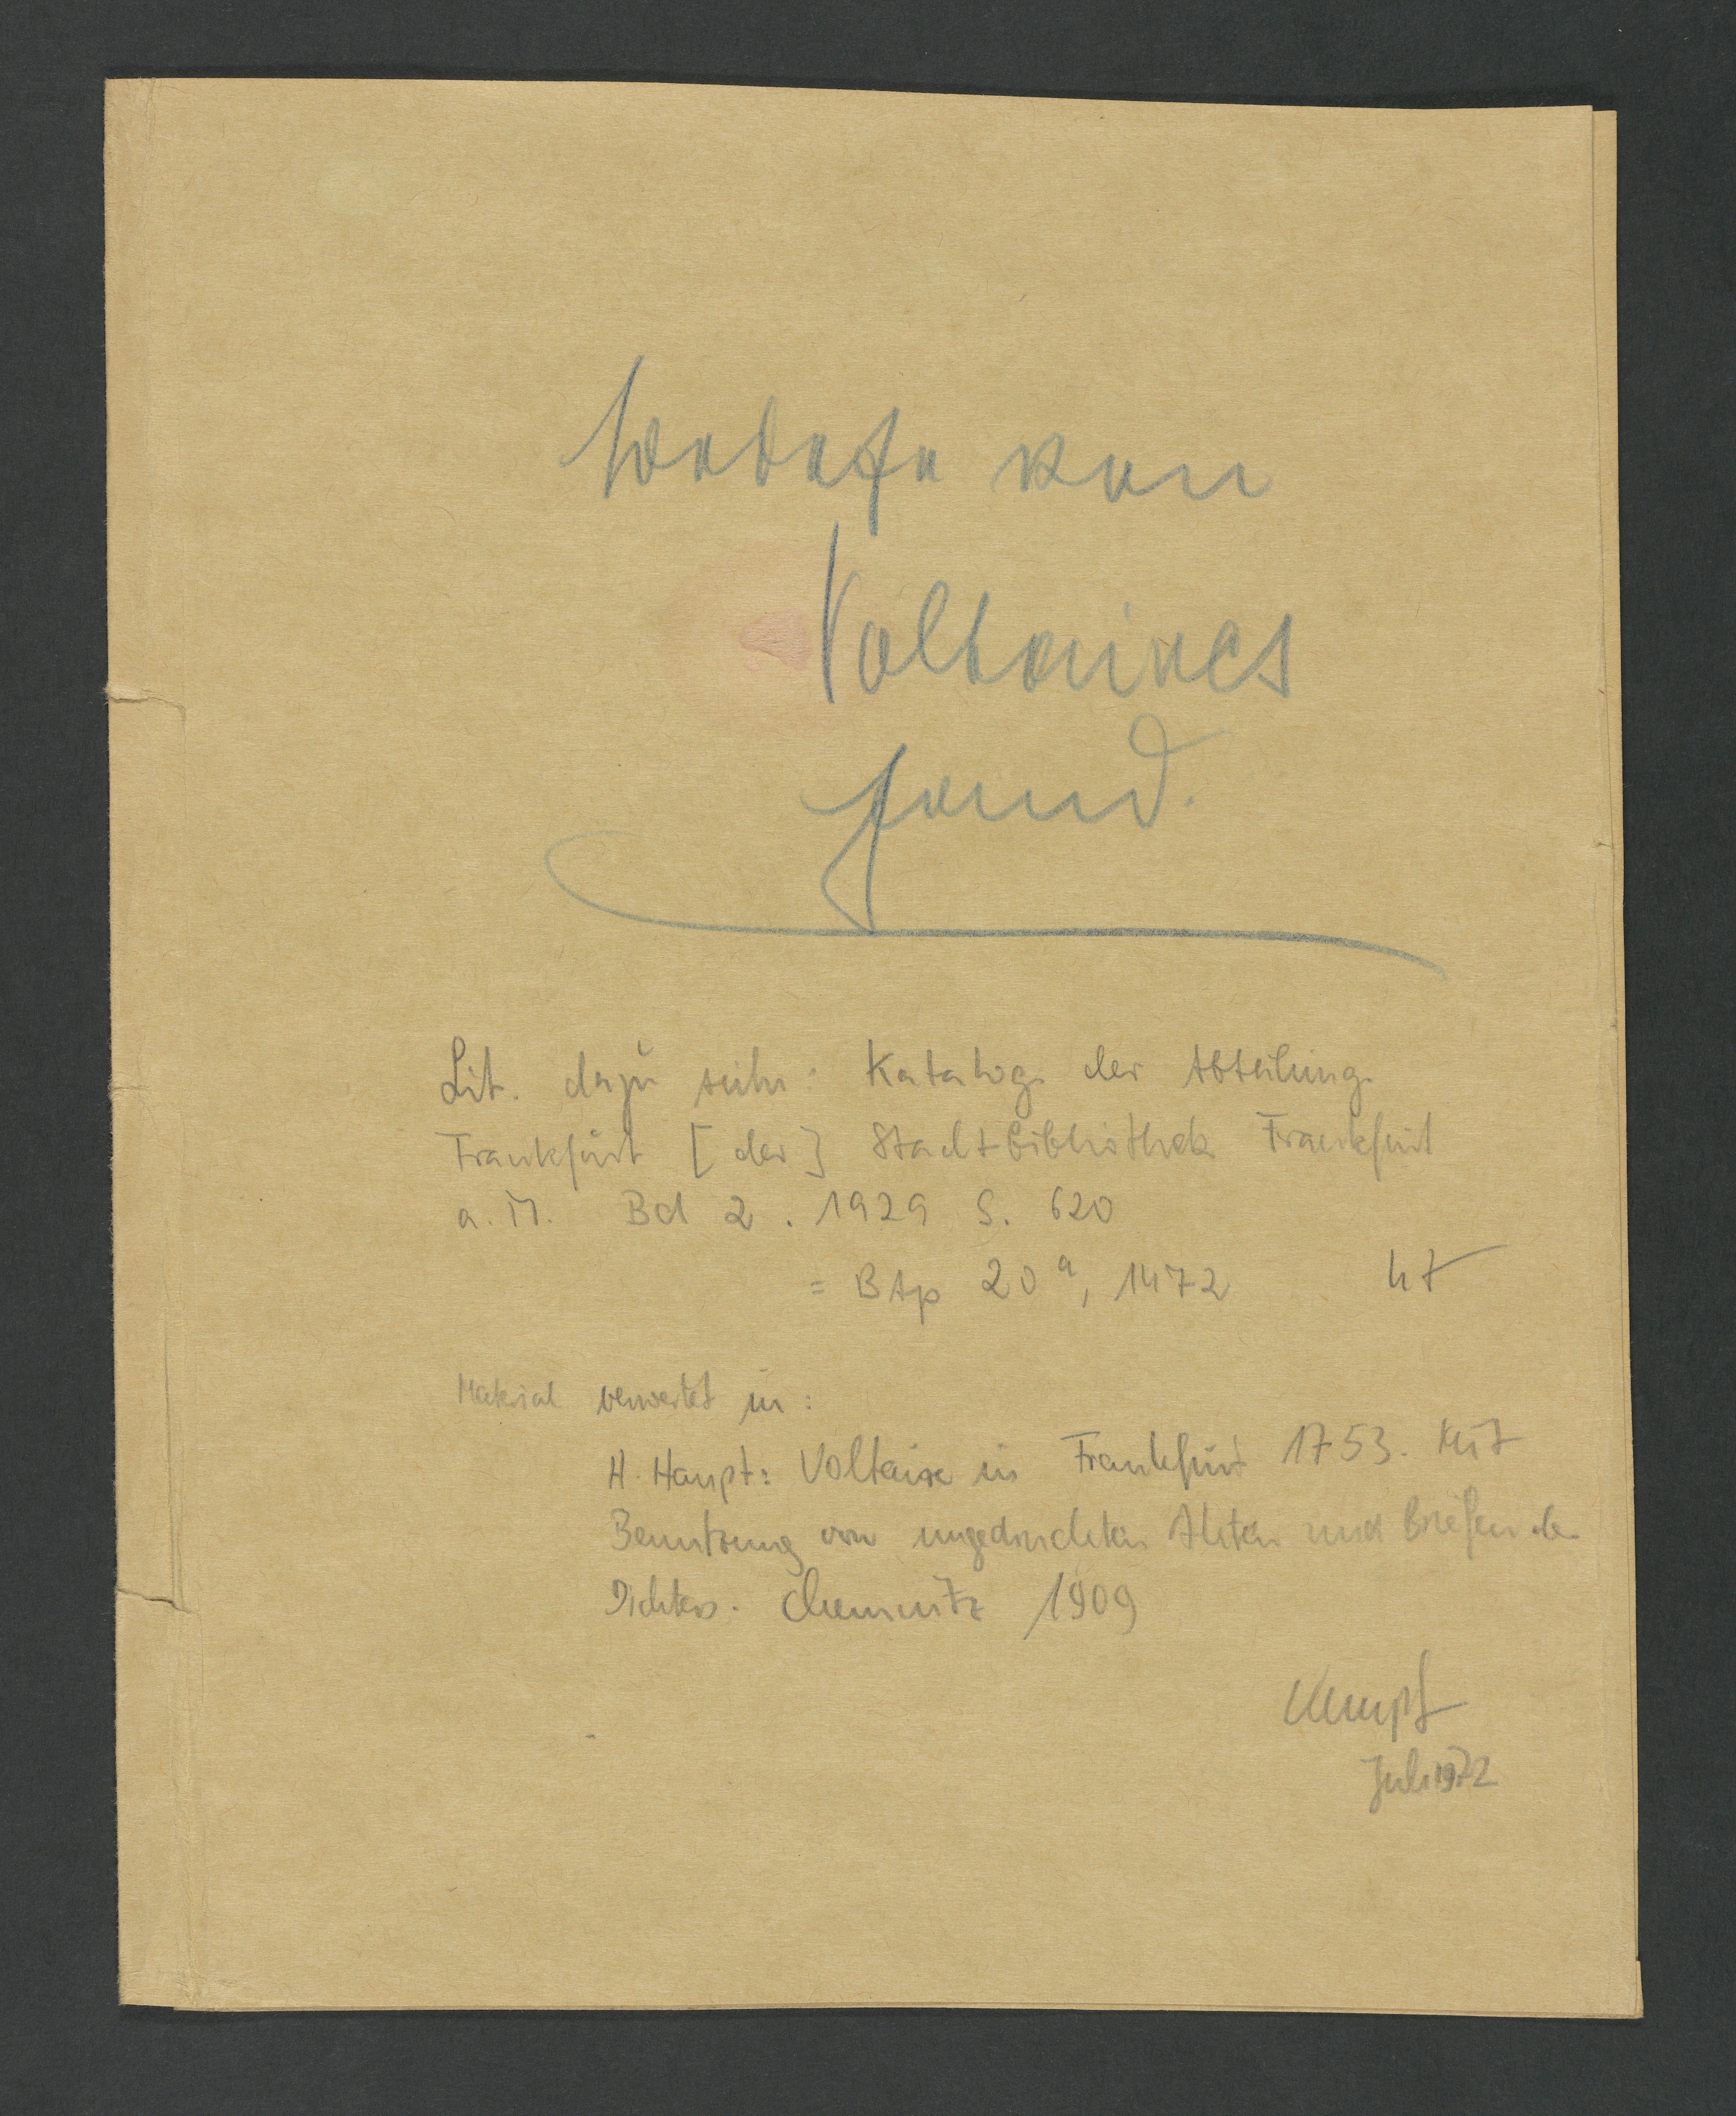 von
Voltaires
Hand.
Lit. dazu siehe: Katalog der Abteilung
Frankfurt [der] Stadtbibliothek Frankfurt
a. M. Bd 2. 1929 S. 620
= BAp 20ª, 1472
Material verwertet in:
H. Haupt: Voltaire in Frankfurt 1753. Mit
Benutzung von ungedruckten Akten und Briefen des
Dichters. Chemnitz 1909
Juli 1972